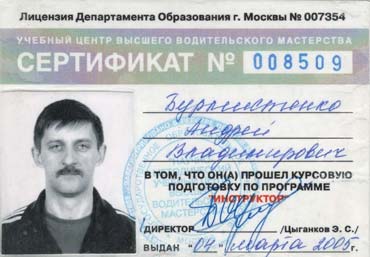 Лицензия Департамента Образования г. Москвы № 007354
УЧЕБНЫЙ ЦЕНТР ВЫСШЕГО ВОДИТЕЛЬСКОГО МАСТЕРСТВА
СЕРТИФИКАТ № 008509
Андрей
Владимирович
В ТОМ, ЧТО ОН(А) ПРОШЕЛ КУРСОВУЮ
ПОДГОТОВКУ ПО ПРОГРАММЕ
"ИНСТРУКТОР"
ДИРЕКТОР /Цыганков Э. С./
ВЫДАН "04" марта 2005г.